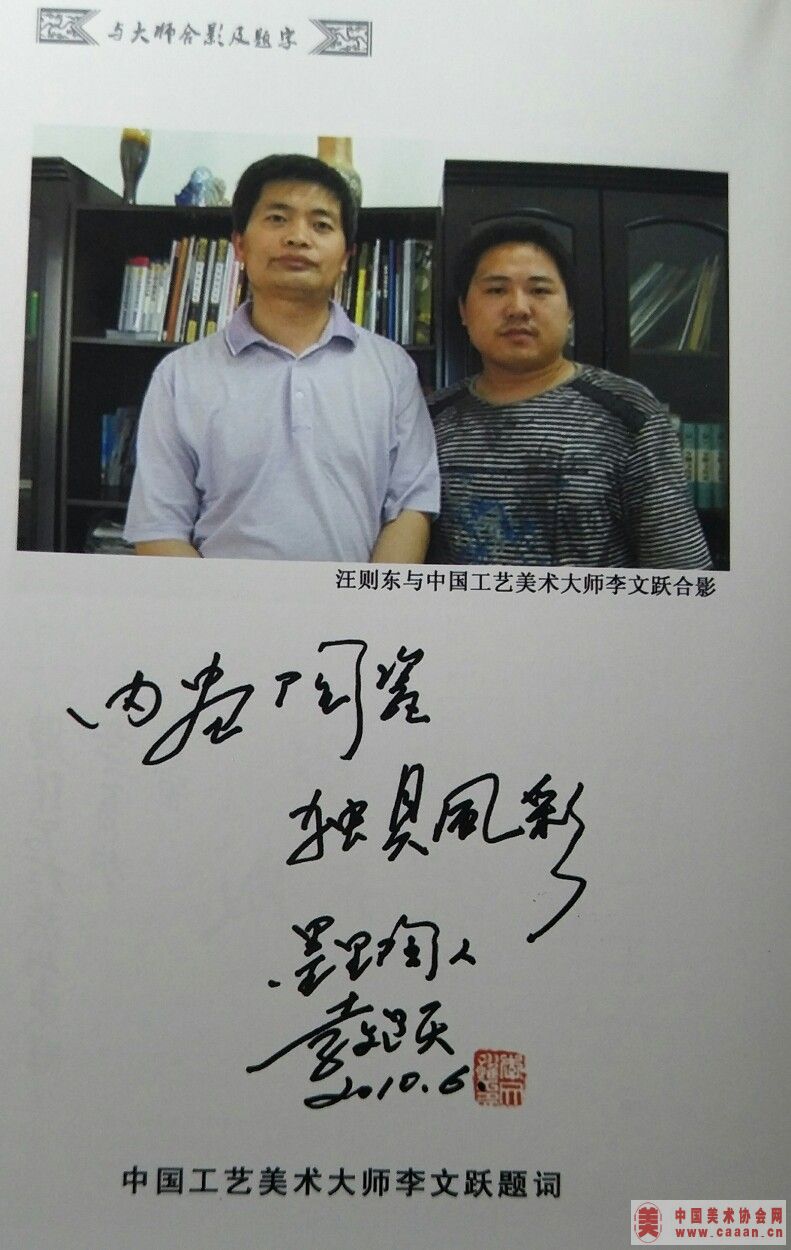 与大师合影及题字
汪则东与中国工艺美术大师李文跃合影
内画陶瓷
独具风彩
墨里陶人
李文跃
2010.6.
中国工艺美术大师李文跃题词
美 中国美术协会网
www.caaan.cn